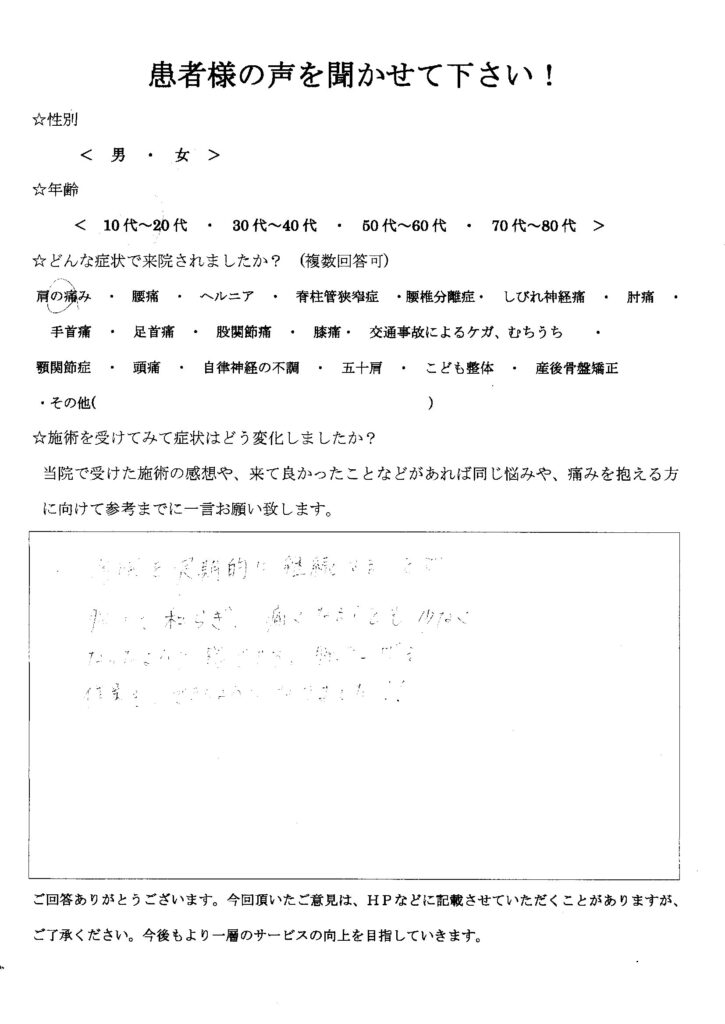 患者様の声を聞かせて下さい！
☆性別
＜　男　・　女　＞
☆年齢
＜　10代～20代　・　30代～40代　・　50代～60代　・　70代～80代　＞
☆どんな症状で来院されましたか？　(複数回答可)
肩の痛み　・　腰痛　・　ヘルニア　・　脊柱管狭窄症　・腰椎分離症・　しびれ神経痛　・　肘痛　・
手首痛　・　足首痛　・　股関節痛　・　膝痛・　交通事故によるケガ、むちうち　　・
顎関節症　・　頭痛　・　自律神経の不調　・　五十肩　・　こども整体　・　産後骨盤矯正
・その他(　　　　　　　　　　)
☆施術を受けてみて症状はどう変化しましたか？
当院で受けた施術の感想や、来て良かったことなどがあれば同じ悩みや、痛みを抱える方
に向けて参考までに一言お願い致します。
定期的に継続
和らぎ、 少なく
ご回答ありがとうございます。今回頂いたご意見は、ＨＰなどに記載させていただくことがありますが、
ご了承ください。今後もより一層のサービスの向上を目指していきます。